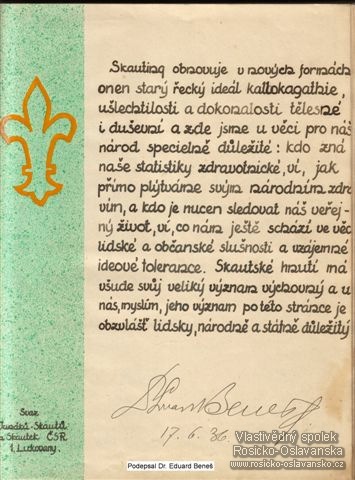 Skauting obnovuje v nových formách
onen starý řecký ideál kallokagathie,
ušlechtilosti a dokonalosti tělesné
i duševní a zde jsme u věci pro náš
národ specielně důležité: kdo zná
naše statistiky zdravotnické, ví, jak
přímo plýtváme svým národním zdra
vím, a kdo je nucen sledovat náš veřej-
ný život, ví, co nám ještě schází ve věci
lidské a občanské slušnosti a vzájemné
ideové tolerance. Skautské hnutí má
všude svůj veliký význam výchovný a u
nás, myslím, jeho význam po této stránce je
obzvlášť lidsky, národně a státně důležitý
Dr Eduard Beneš
17. 6. 36.
Svaz
Junáků-Skautů
a Skautek ČSR
Podepsal Dr. Eduard Beneš
Vlastivědný spolek
Rosicko-Oslavanska
www.rosicko-oslavansko.cz